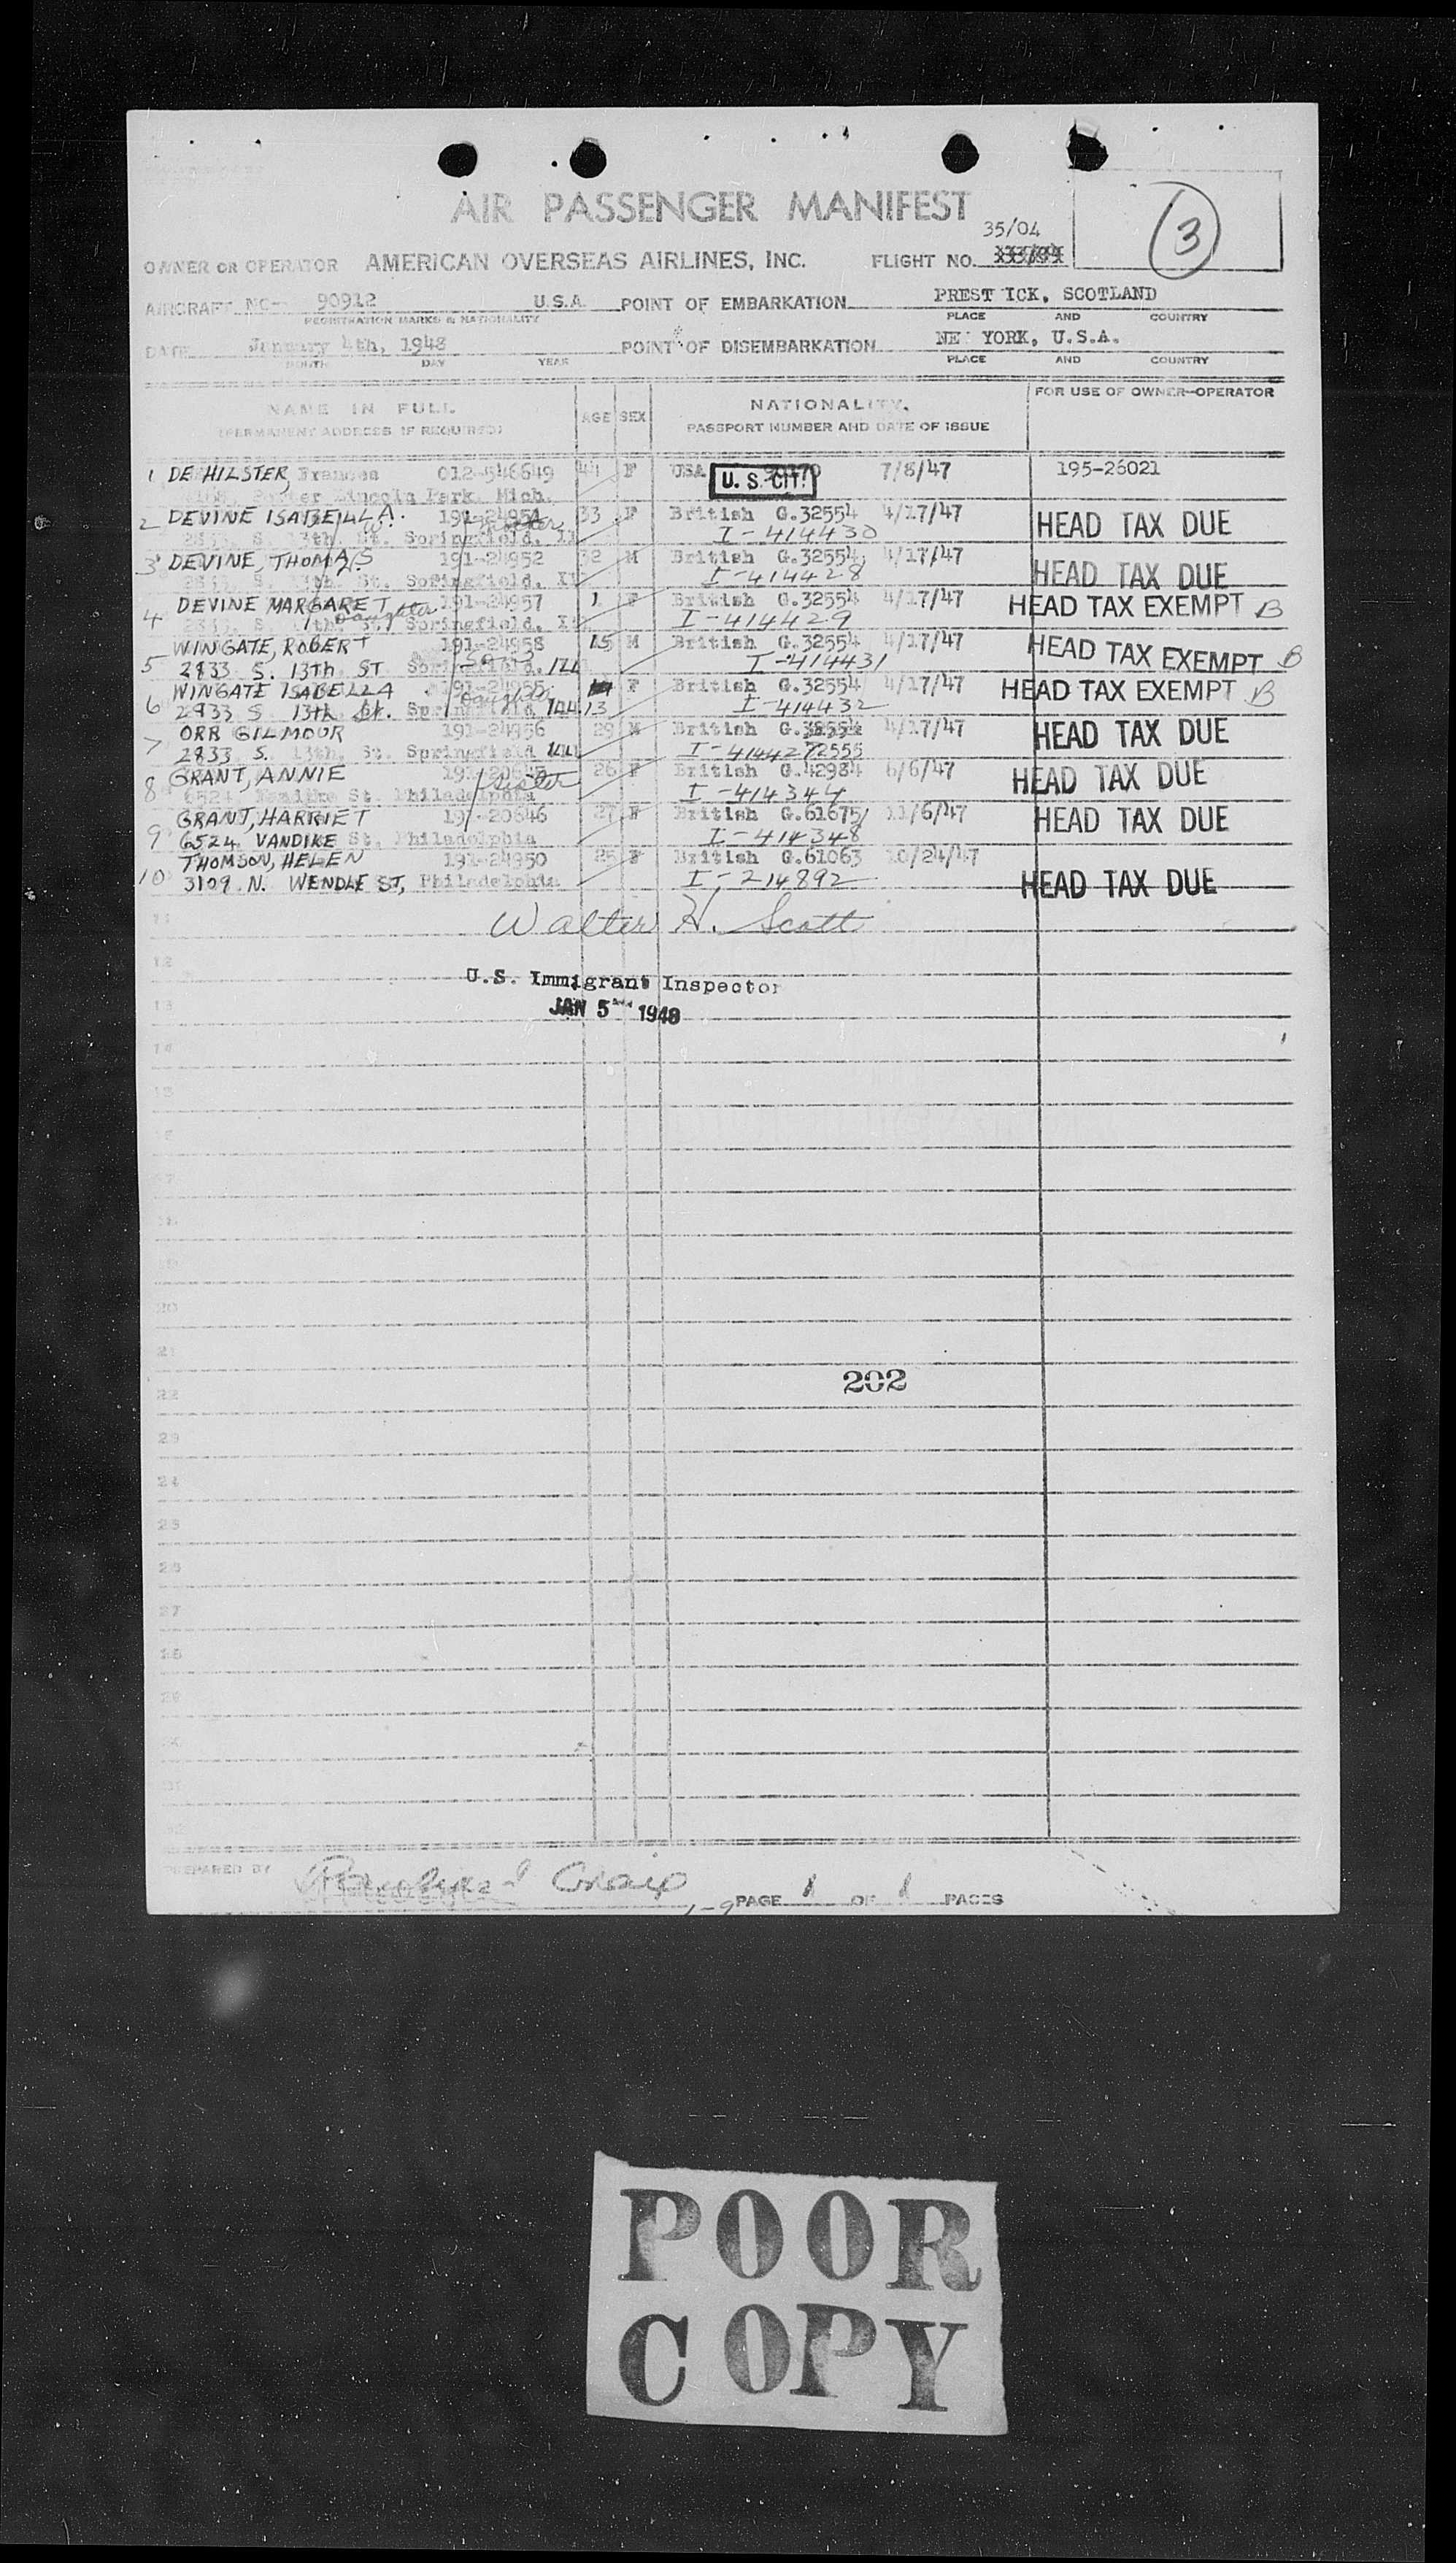 AIR PASSENGER MANIFEST
35/04
3
OWNER OR OPERATOR AMERICAN OVERSEAS AIRLINES, INC. FLIGHT NO.
AIRCRAFT NC- 90912 U.S.A. POINT OF EMBARKATION PREST ICK, SCOTLAND
REGISTRATION MARKS & NATIONALITY PLACE AND COUNTRY
DATE January 4th, 1948 POINT OF DISEMBARKATION NE YORK, U.S.A.
MONTH DAY YEAR PLACE AND COUNTRY
NAME IN FULL AGE SEX NATIONALITY, FOR USE OF OWNER-OPERATOR
(PERMANENT ADDRESS IF REQUIRED) PASSPORT NUMBER AND DATE OF ISSUE
1 DE HILSTER, Frances 012-546649 44 F USA 7/8/47 195-26021
Lincoln Park, Mich. U. S. CIT.
2 DEVINE ISABELLA. 191-24951 33 F British G.32554 4/17/47 HEAD TAX DUE
S. 13th. St. Springfield, I-414430
3 DEVINE, THOMAS 191-24952 32 M British G.32554 4/17/47 HEAD TAX DUE
S. 13th. St. Springfield, I-414428
4 DEVINE MARGARET 191-24957 1 F British G.32554 4/17/47 HEAD TAX EXEMPT B
S. 13th. St. daughter Springfield, I-414429
5 WINGATE, ROBERT 191-24958 15 M British G.32554 4/17/47 HEAD TAX EXEMPT B
2833 S. 13th ST Springfield. ILL I-414431
6 WINGATE ISABELLA daughter F British G.32554 4/17/47 HEAD TAX EXEMPT B
2933 S 13th St. Springfield ILL 13 I-414432
7 ORR GILMOUR 191-24956 29 M British 4/17/47 HEAD TAX DUE
2833 S. 13th. St. Springfield ILL I-414427 2555
8 GRANT, ANNIE sister 26 F British G.42984 6/6/47 HEAD TAX DUE
6524 St. Philadelphia I-414344
9 GRANT, HARRIET 191-20646 27 F British G.61675 11/6/47 HEAD TAX DUE
6524 VANDIKE St, Philadelphia I-414348
10 THOMSON, HELEN 191-24950 25 F British G.61063 10/24/47
3109 N. WENDLE ST, Philadelphia I-214892 HEAD TAX DUE
11
Walter H. Scott
12
U.S. Immigrant Inspector
13
JAN 5 1948
14
15
16
17
18
19
20
21
22
202
23
24
25
26
27
28
29
30
31
32
PREPARED BY Craig PAGE 1 OF 1 PAGES
1-9
POOR
COPY